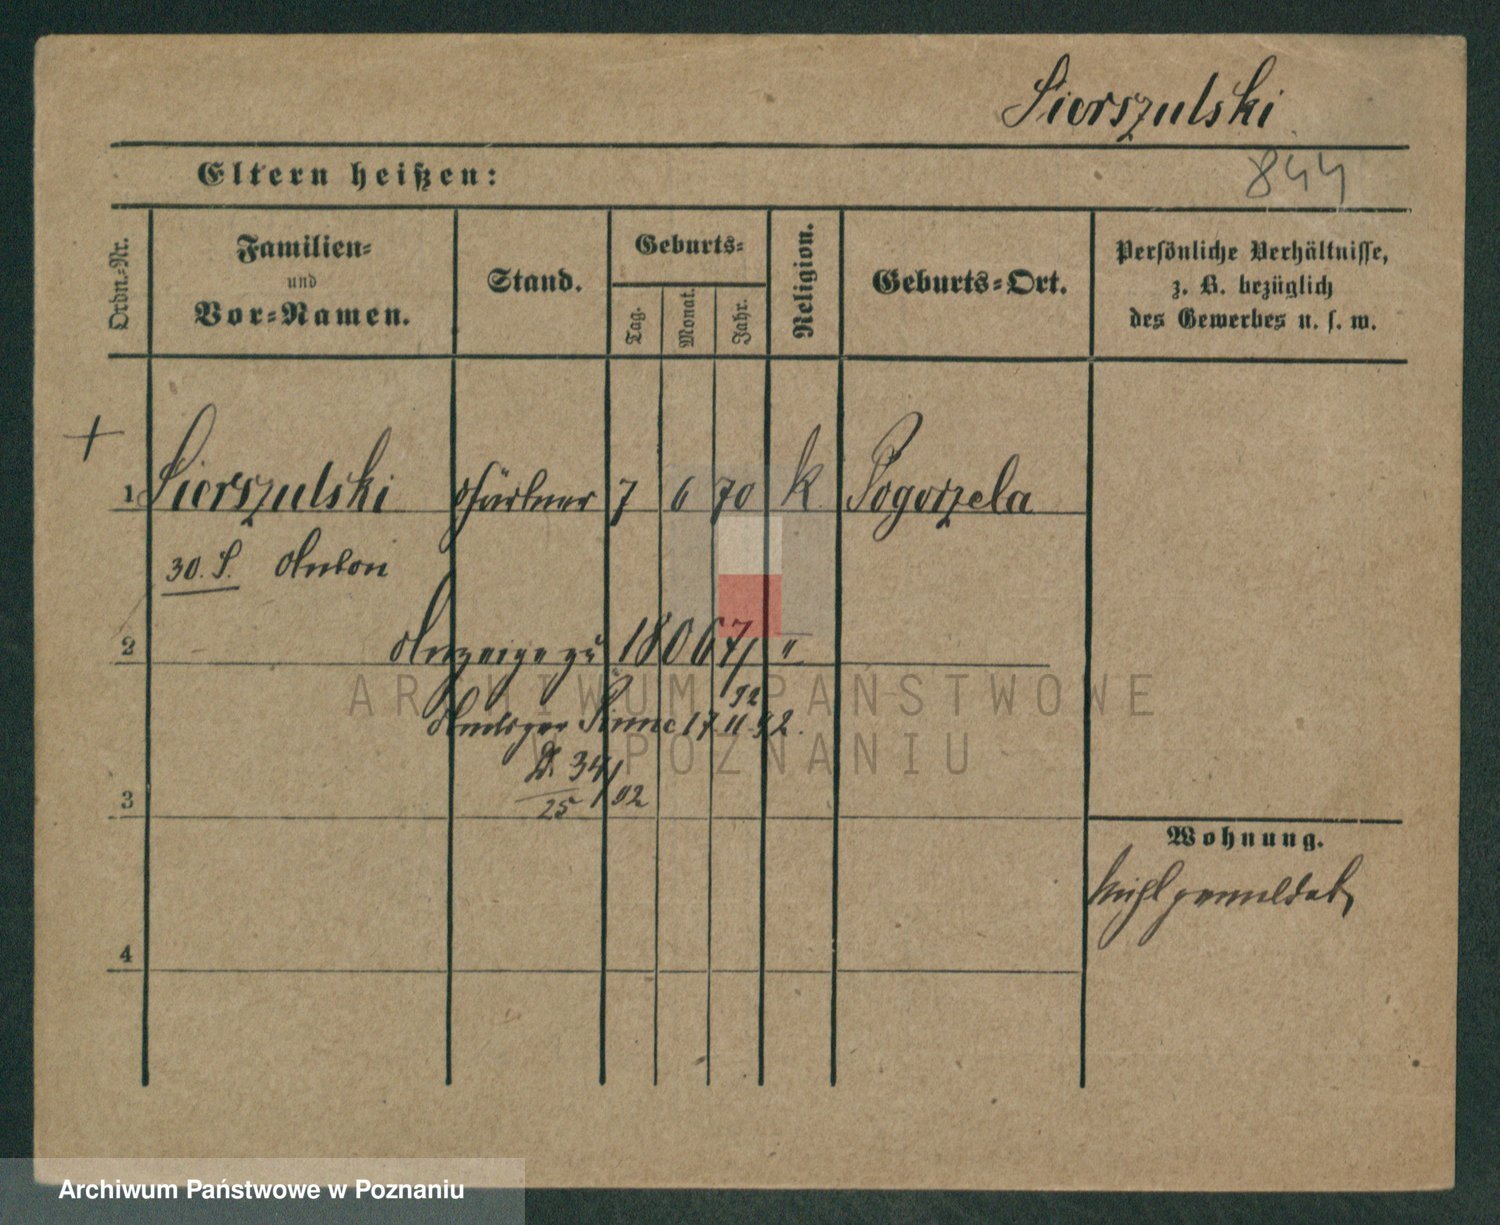 Sierszulski
Eltern heißen:
844
Ordn.-Nr.
Familien-
und
Vor-Namen.
Stand.
Geburts-
Tag.
Monat.
Jahr.
Religion.
Geburts-Ort.
Persönliche Verhältnisse,
z. B. bezüglich
des Gewerbes u. s. w.
+
1 Sierszulski Gärtner 7 6 70 k Pogorzela
30. S. Anton
2 Anzeige zu 18067/92 "
ARCHIWUM PAŃSTWOWE
Pinne 17 11 92.
W POZNANIU
D. 34/92
25
3
Wohnung.
nicht gemeldet
4
Archiwum Państwowe w Poznaniu